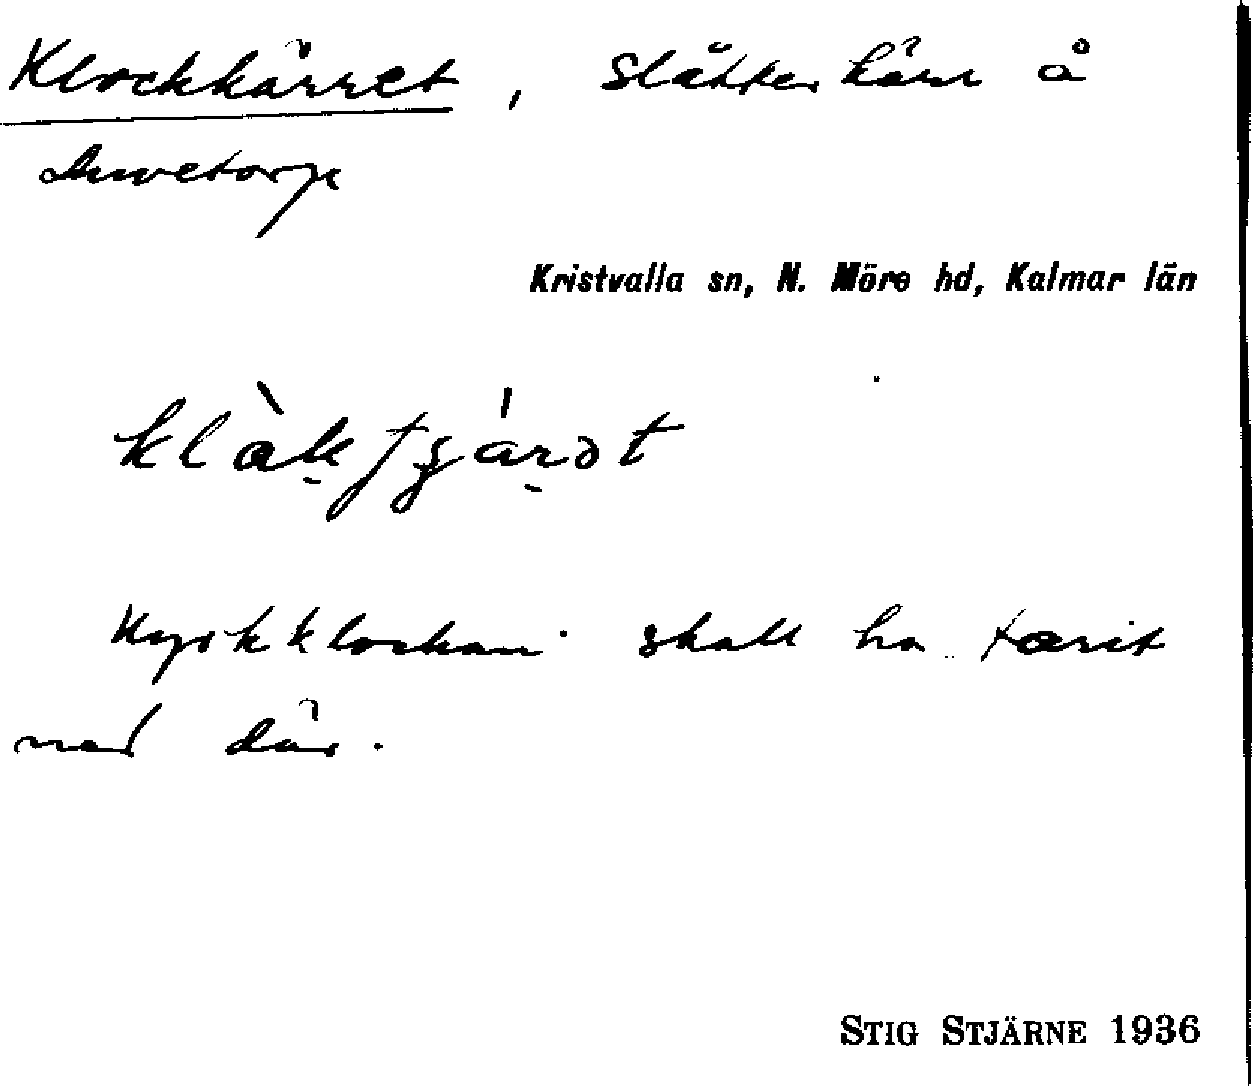 Klockkärret, Slåtterkärr å
Duvetorp
Kristvalla sn, N. Möre hd, Kalmar län
Kyrkklockan skall ha
ned där.
STIG STJÄRNE 1936